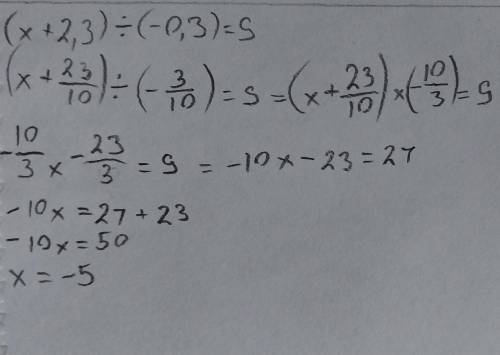 (x+2,3)÷(-0,3)=9
(x+23/10)÷(-3/10)=9=(x+23/10)×(-10/3)=9
-10/3x-23/3=9=-10x-23=27
-10x=27+23
-10x=50
x=-5